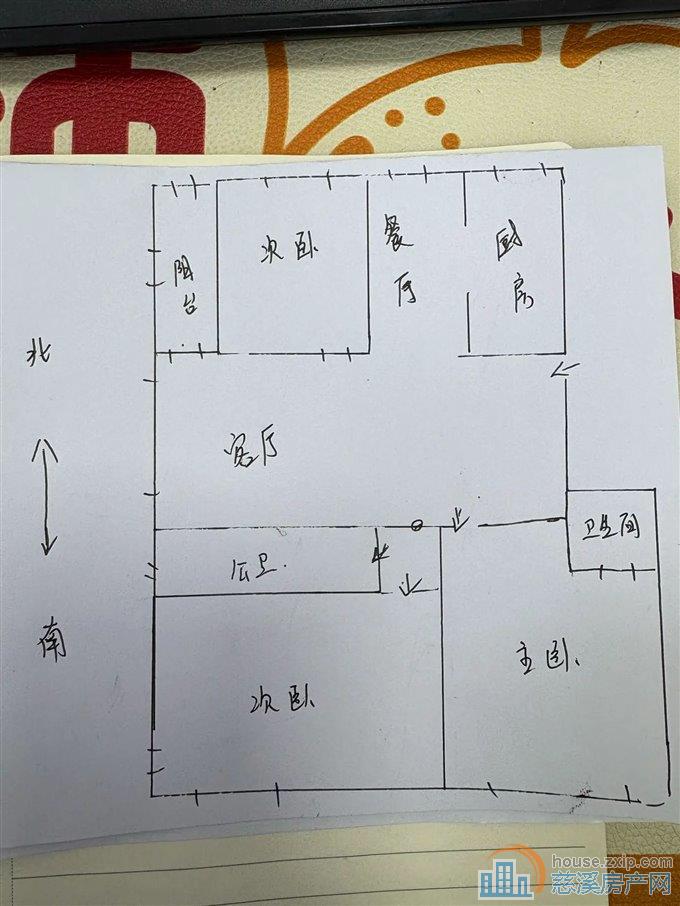 阳台
次卧
餐厅
厨房
北
客厅
公卫
卫生间
南
主卧
次卧
house.zxip.com
慈溪房产网